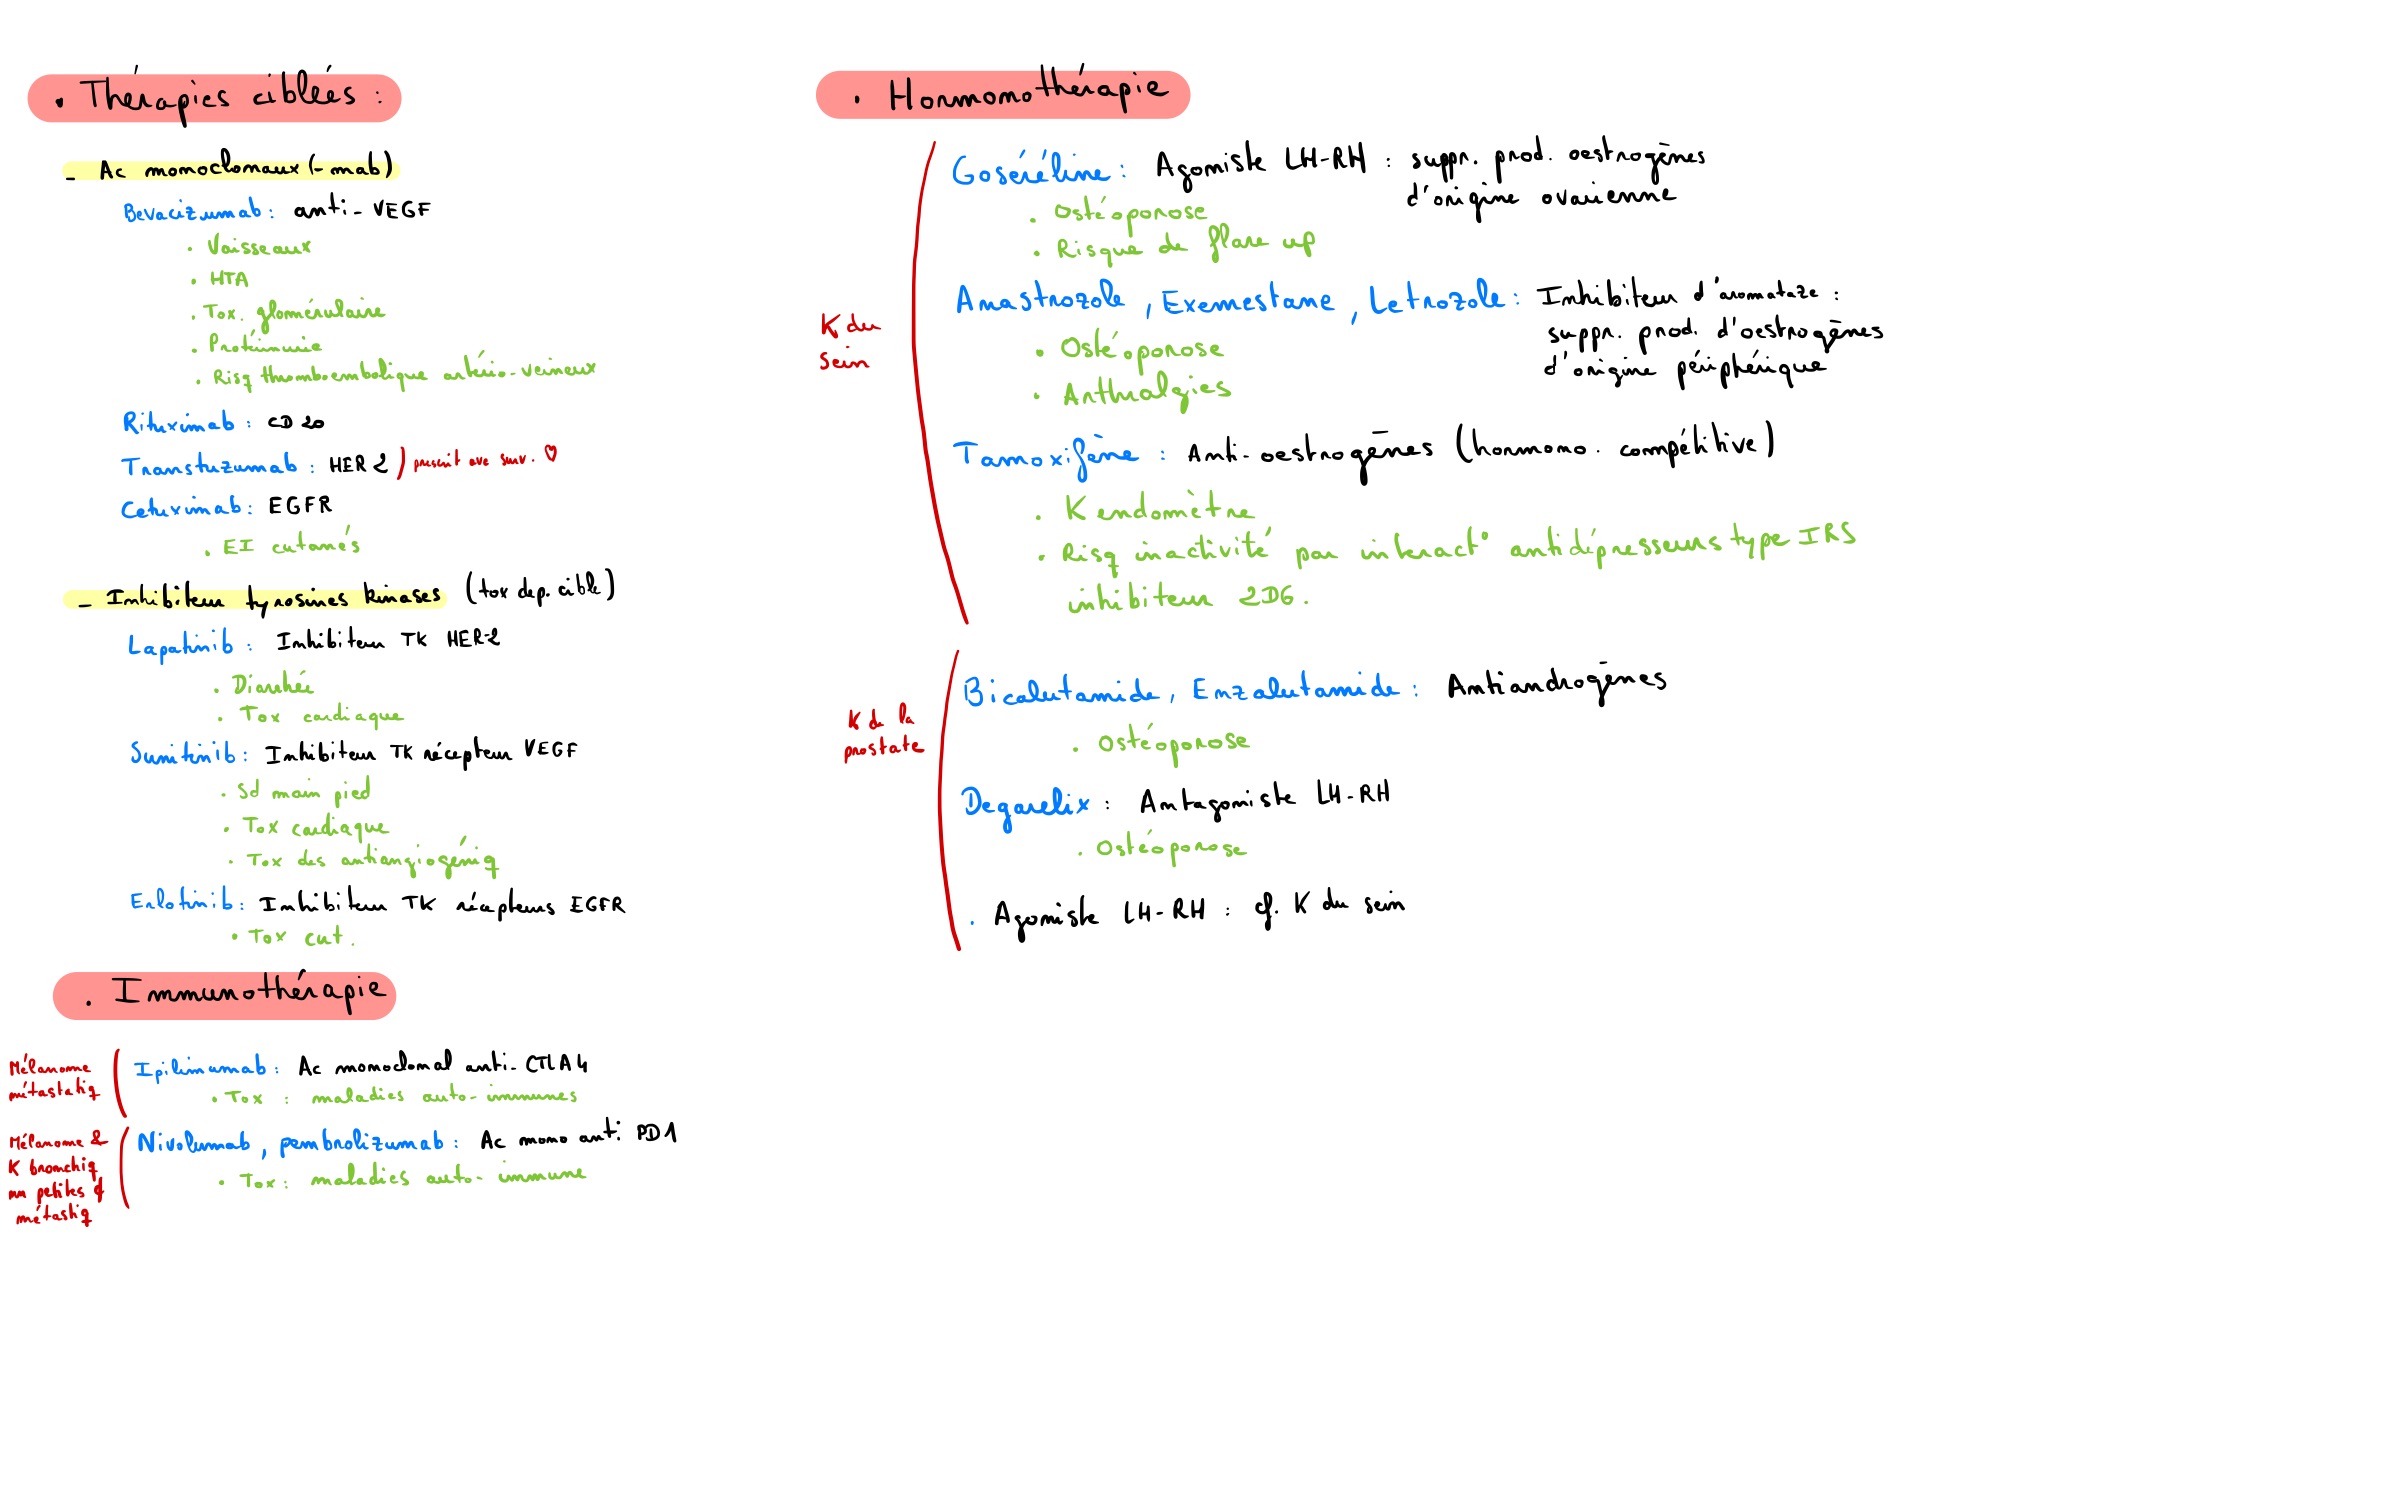 • Thérapies ciblées :
- Ac monoclonaux (-mab)
Bevacizumab : anti-VEGF
• Vaisseaux
• HTA
• Tox. glomérulaire
• Protéinurie
• Risq thromboembolique artério-veineux
Rituximab : CD 20
Transtuzumab : HER 2 ) prescrit ave surv. ♡
Cetuximab : EGFR
• EI cutanés
- Inhibiteur tyrosines kinases (tox dep. cible)
Lapatinib : Inhibiteur TK HER-2
• Diarrhée
• Tox cardiaque
Sunitinib : Inhibiteur TK récepteur VEGF
• Sd main pied
• Tox cardiaque
• Tox des antiangiogéniq
Erlotinib : Inhibiteur TK récepteurs EGFR
• Tox cut.
• Immunothérapie
Mélanome
métastatiq
Ipilimumab : Ac monoclonal anti-CTLA4
• Tox : maladies auto-immunes
Mélanome &
K bronchiq
nn petites ¢
métastiq
Nivolumab, pembrolizumab : Ac mono anti PD1
• Tox : maladies auto-immune
• Hormonothérapie
K du
sein
Goséréline : Agoniste LH-RH : suppr. prod. oestrogènes
d'origine ovarienne
• Ostéoporose
• Risque de flare up
Anastrozole, Exemestane, Letrozole : Inhibiteur d'aromataze :
suppr. prod. d'oestrogènes
d'origine périphérique
• Ostéoporose
• Arthralgies
Tamoxifène : Anti-oestrogènes (hormono. compétitive)
• K endomètre
• Risq inactivité par interact° antidépresseurs type IRS
inhibiteur 2D6.
K de la
prostate
Bicalutamide, Enzalutamide : Antiandrogènes
• Ostéoporose
Degarelix : Antagoniste LH-RH
• Ostéoporose
• Agoniste LH-RH : cf. K du sein